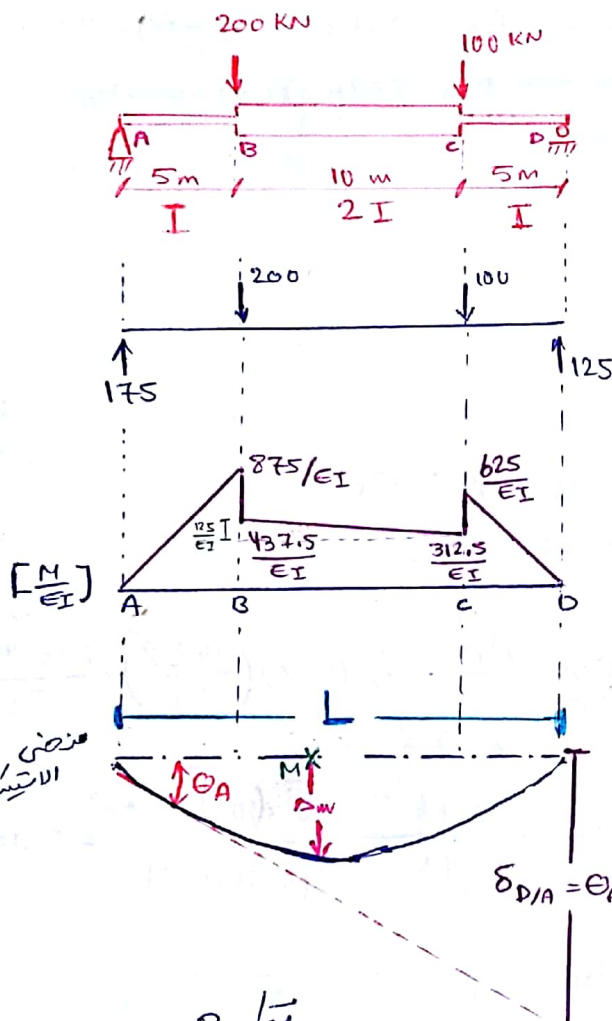 200 KN
100 KN
A B C D
5m 10 m 5m
I 2I I
200 100
175 125
875/EI
625/EI
125/EI I 437.5/EI 312.5/EI
[M/EI]
A B C D
L
M
θA
Δm
δD/A = θ